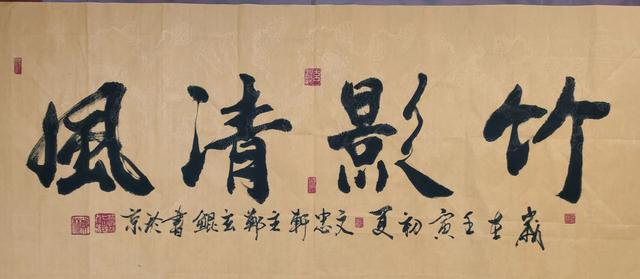 竹影清風
歲在壬寅初夏文忠軒主鄭玄鯤書於京